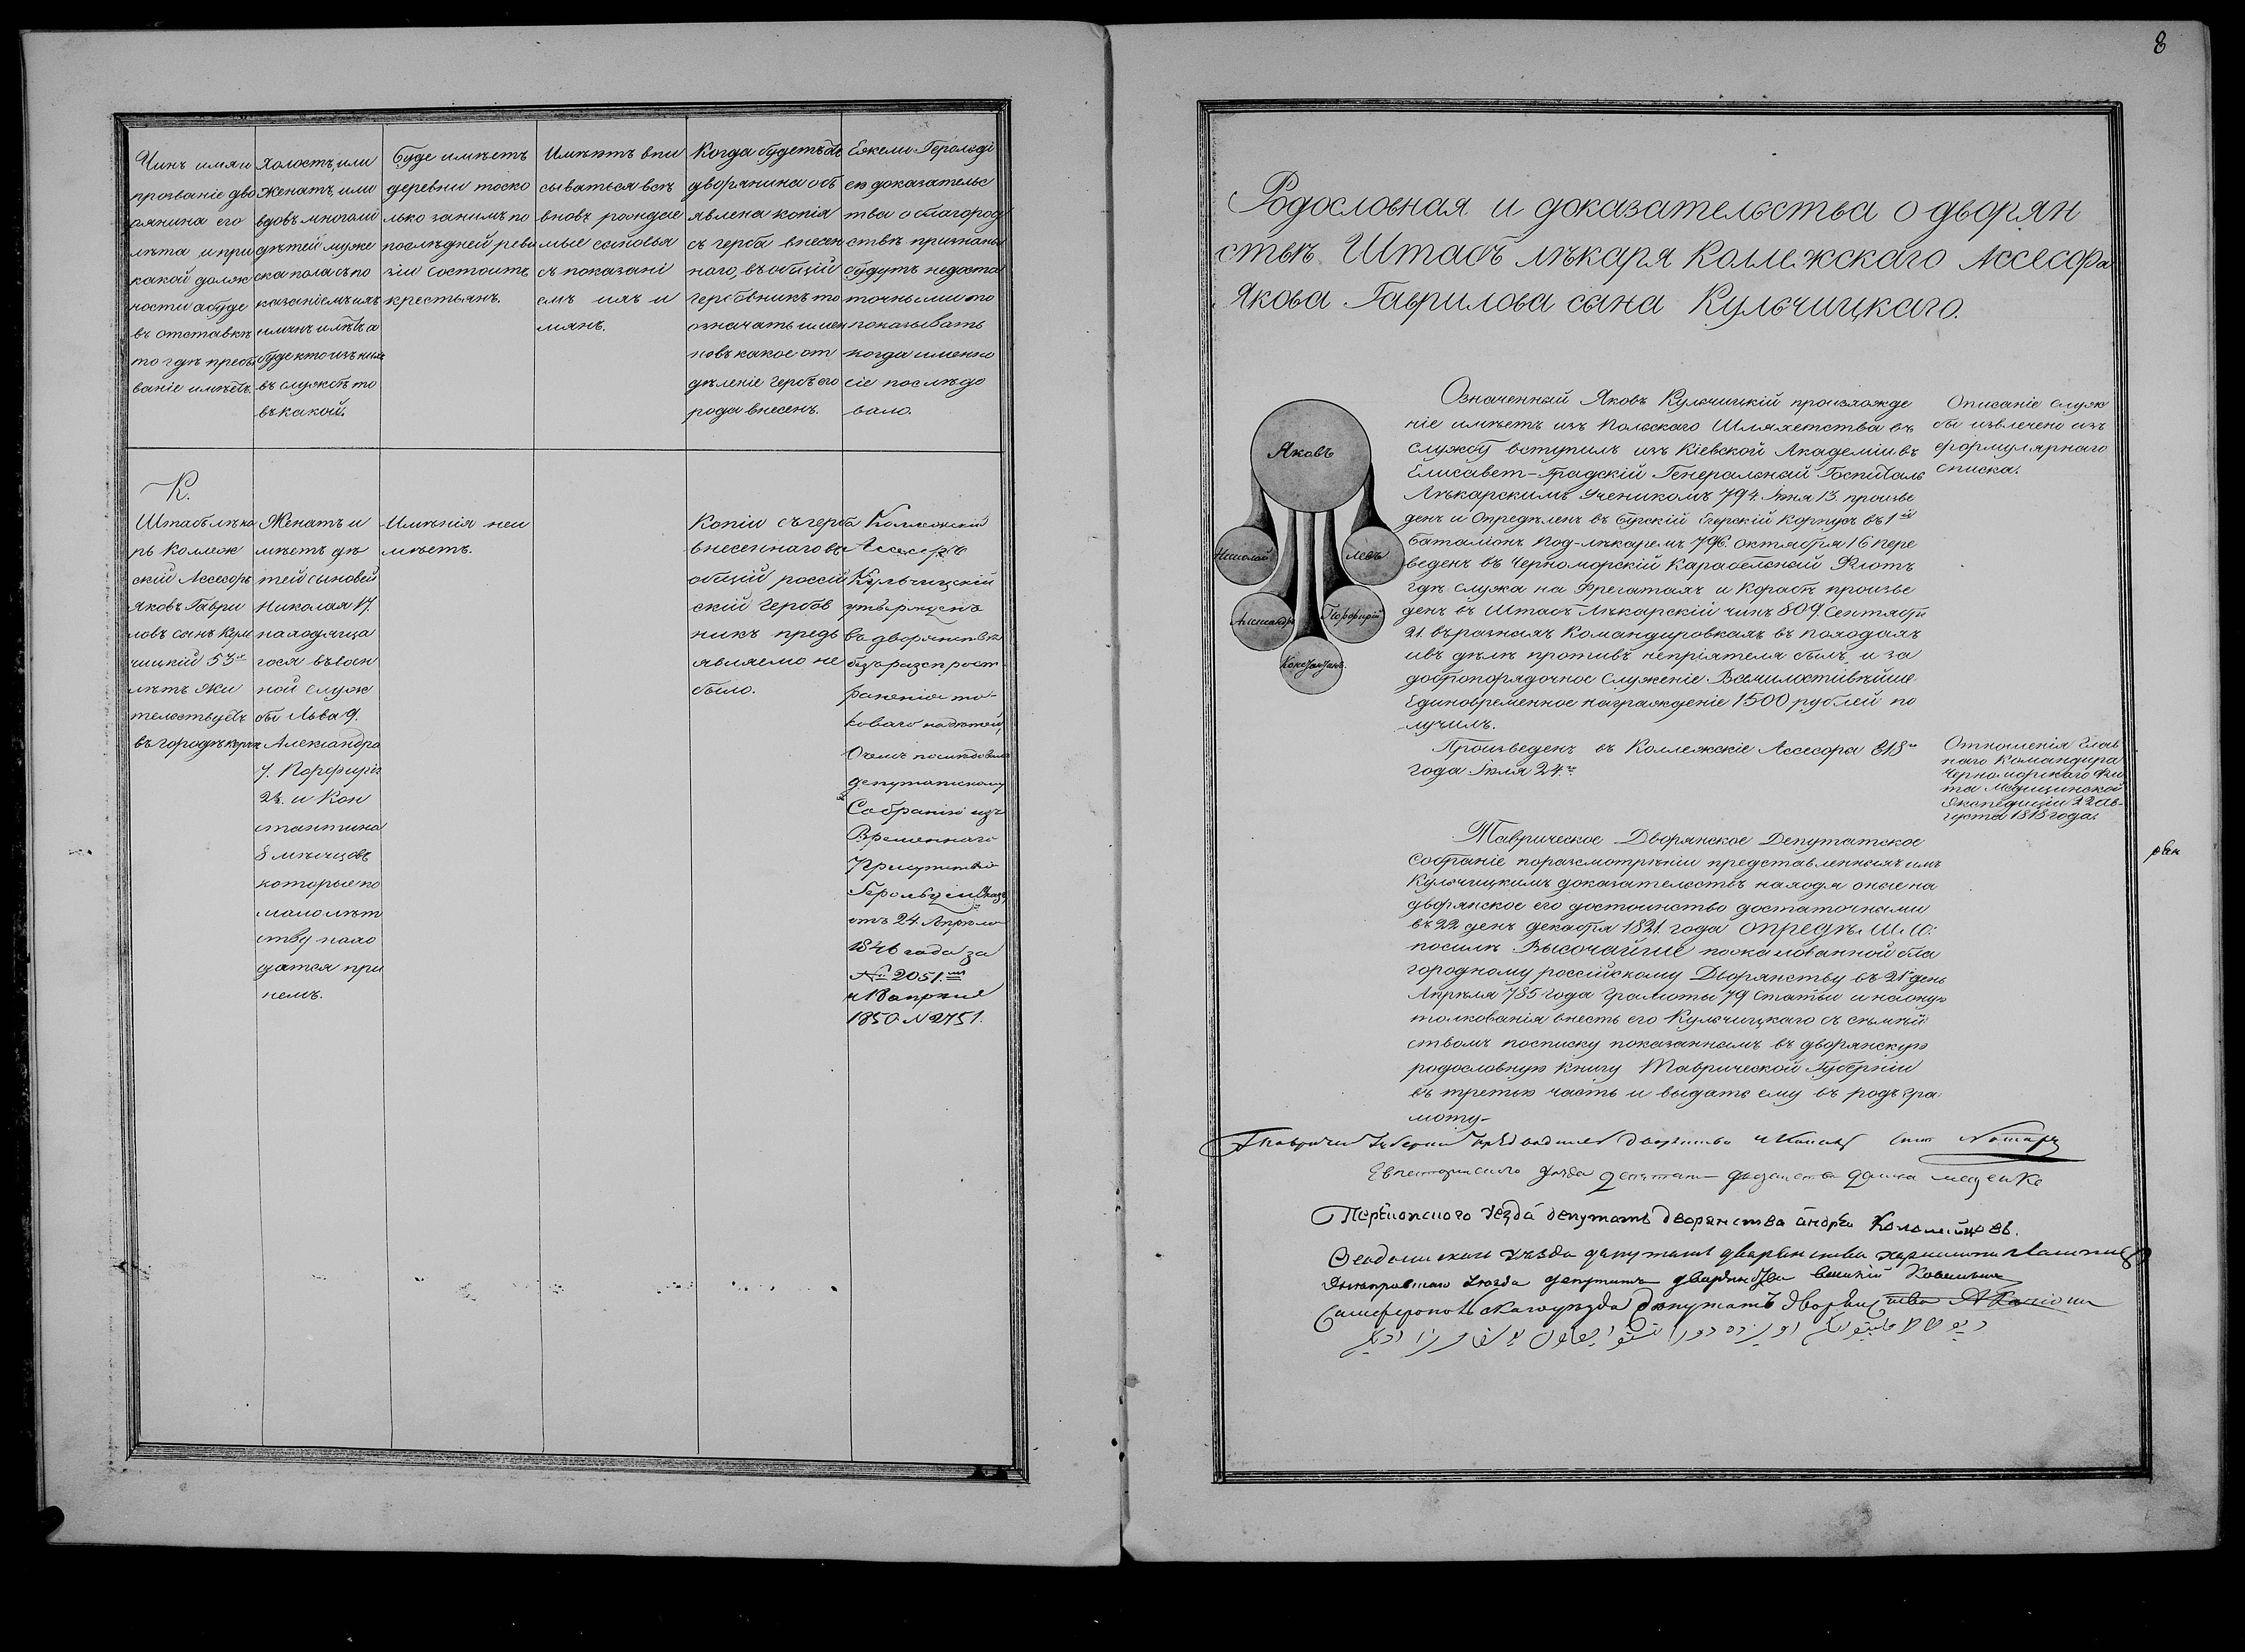 8
Чинъ имя и
прозваніе дво
рянина его
лѣта и при
какой долж
ности а буде
въ отставкѣ
то гдѣ пребы
ваніе имѣетъ.
Холостъ, или
Женатъ, или
вдовъ много ли
дѣтей муже
ска пола съ по
казаніемъ ихъ
имянъ и лѣтъ а
буде кто изъ нихъ
въ службѣ то
въ какой.
Буде имѣетъ
деревни то ско
лько за нимъ по
послѣдней реви
зіи состоитъ
крестьянъ.
Имѣютъ впи
сываться всѣ
вновь рождае
мые сыновья
съ показані
емъ ихъ и
мянъ.
Когда будетъ отъ
дворянина объ
явлена копія
съ герба внесен
наго, въ общій
гербовникъ то
означать имян
новъ какое от
дѣленіе гербъ его
рода внесенъ.
Ежели Герольді
ею доказательс
тва о благород
ствѣ признаны
будутъ недоста
точными то
показывать
когда именно
сіе послѣдо
вало.
К.
Штабъ лѣка
рь Коллеж
скій Ассесоръ
Яковъ Гаври
ловъ сынъ Куль
чицкій 53хъ
лѣтъ жи
тельствуетъ
въ городѣ Керчи
Женатъ и
мѣетъ дѣ
тей сыновей
Николая 17.
находяща
гося въ воен
ной служ
бѣ Льва 9.
Александра
7. Порфирія
2х. и Кон
стантина
8 мѣсяцовъ
которые по
малолѣт
ству нахо
дятся при
немъ.
Имѣнія неи
мѣетъ.
Копіи съ герба
внесеннаго въ
общій россій
скій гербов
никъ предъ
являемо не
было.
Коллежскій
Ассесоръ
Кульчицкій
утвержденъ
въ дворянствѣ
безъ разспрост
раненія та-
коваго на дѣтей,
О чемъ послѣдовалъ
депутатскому
Собранію изъ
Временнаго
Присутствія
Герольдіи Указъ
отъ 24. Апрѣля
1846 года за
№ 2051.
и 18 апрѣля
1850 № 2751.
Родословная и доказательства о дворян
ствѣ Штабъ лѣкаря Коллежскаго Ассесора
Якова Гаврилова сына Кульчицкаго.
Яковъ
Николай
Левъ
Александръ
Порфирій
Константинъ.
Означенный Яковъ Кульчицкій произхожде
ніе имѣетъ изъ Польскаго Шляхетства въ
службу вступилъ изъ Кіевской Академіи въ
Елисавет-Градскій Генеральный Госпиталь
Лѣкарскимъ Ученикомъ 794. Іюня 13. произве
денъ и Опредѣленъ въ Бугскій Егерскій Корпусъ въ 1й
баталіонъ Под-лѣкаремъ 796. октября 16 пере
веденъ въ Черноморскій Карабельный Флотъ
гдѣ служа на Фрегатахъ и Корабѣ произве
денъ въ Штабъ Лѣкарскій чинъ 809. Сентября
21. въ разныхъ Командировкахъ въ походахъ
и въ дѣлѣ противъ непріятеля былъ, и за
добропорядочное служеніе Всемилостивѣйше
Единовременное награжденіе 1500 рублей по
лучилъ.
Описаніе служ
бы извлечено изъ
формулярнаго
списка.
Произведенъ въ Коллежскіе Ассесоры 818го
года Іюля 24го
Отношенія Глав
наго Командира
Черноморскаго Фло
та Медицинской
Экспедиціи 22 Ав-
густа 1818 года.
Таврическое Дворянское Депутатское
Собраніе поразсмотрѣніи представленныхъ имъ
Кульчицкимъ доказательствъ находя оные на
дворянское его достоинство достаточными
въ 22 день декабря 1821. года опредѣлило:
посилѣ Высочайше пожалованной бла
городному россійскому Дворянству въ 21 день
Апрѣля 785 года грамоты 79 Статьи и на оную
толкованія внесть его Кульчицкаго съ сѣмѣй
ствомъ посписку показаннымъ въ дворянскую
родословную книгу Таврической Губерніи
въ третью часть и выдать ему въ родъ гра
моту.
Перекопскаго уѣзда депутатъ дворянства андрей Коломейцовъ.
Феодосійскаго уѣзда депутатъ дворянства
Днепровскаго уѣзда депутатъ дворянства
Симферопольскаго уѣзда депутатъ дворянства